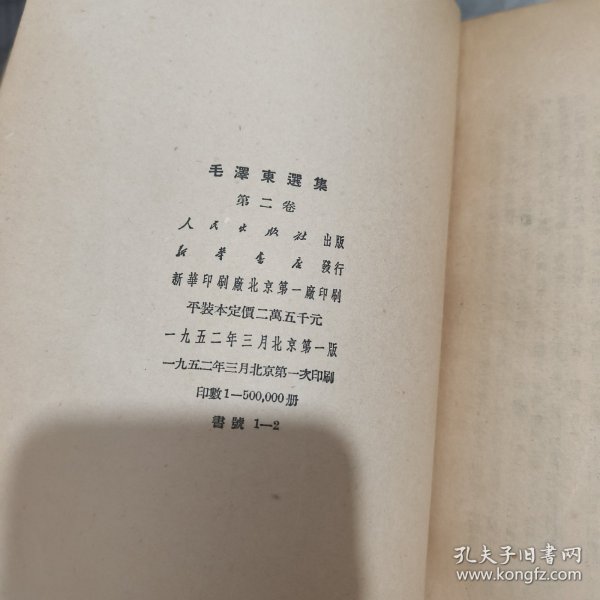 毛澤東選集
第二卷
人民出版社 出版
新華書店 發行
新華印刷廠北京第一廠印刷
平裝本定價二萬五千元
一九五二年三月北京第一版
一九五二年三月北京第一次印刷
印數1—500,000册
書號 1—2
孔夫子旧书网
www.kongfz.com